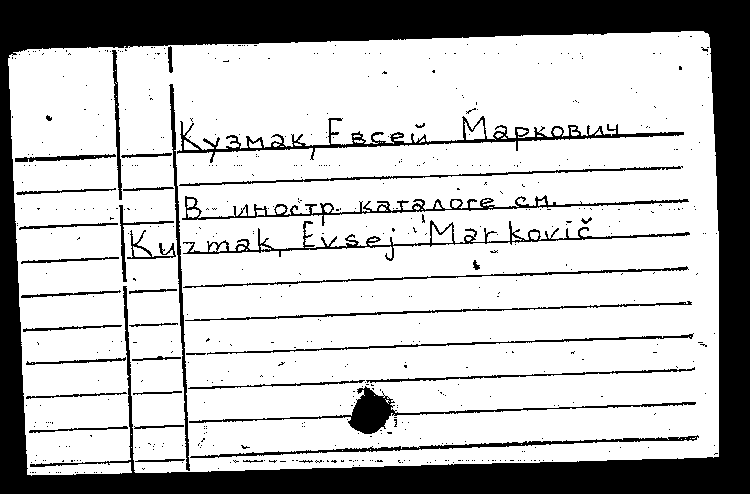 Кузмак, Евсей Маркович
В иностр. каталоге см.
Kuzmak, Evsej Markovič